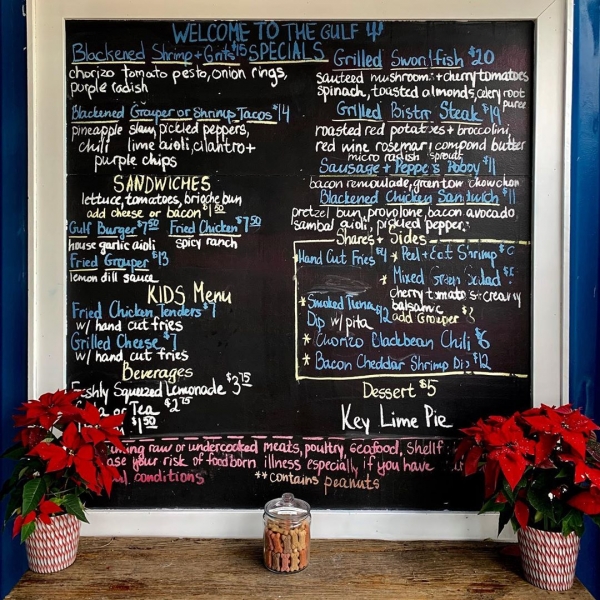 WELCOME TO THE GULF
SPECIALS
Blackened Shrimp + Grits $15
chorizo tomato pesto, onion rings,
purple radish
Blackened Grouper or Shrimp Tacos $14
pineapple slaw, pickled peppers,
chili lime aioli, cilantro +
purple chips
SANDWICHES
lettuce, tomatoes, brioche bun
add cheese or bacon $1.50
Gulf Burger $7.50 Fried Chicken $7.50
house garlic aioli spicy ranch
Fried Grouper $13
lemon dill sauce
KIDS Menu
Fried Chicken Tenders $7
w/ hand cut fries
Grilled Cheese $7
w/ hand cut fries
Beverages
Freshly Squeezed Lemonade $3.75
or Tea $2.75
$1.50
Grilled Swordfish $20
sauteed mushroom + cherry tomatoes
spinach, toasted almonds, celery root
puree
Grilled Bistro Steak $19
roasted red potatoes + broccolini,
red wine rosemary compound butter
micro radish sprouts
Sausage + Peppers Poboy $11
bacon remoulade, green tom chowchow
Blackened Chicken Sandwich $11
pretzel bun, provolone, bacon avocado,
sambal aioli, pickled pepper
Shares + Sides
Hand Cut Fries $4
* Peel + Eat Shrimp
* Mixed Green Salad
cherry tomatoes creamy
balsamic
add Grouper
* Smoked Tuna
Dip w/ pita $12
* Chorizo Blackbean Chili $6
* Bacon Cheddar Shrimp Dip $12
Dessert $5
Key Lime Pie
raw or undercooked meats, poultry, seafood, shellf
your risk of foodborn illness especially if you have
conditions
**contains peanuts